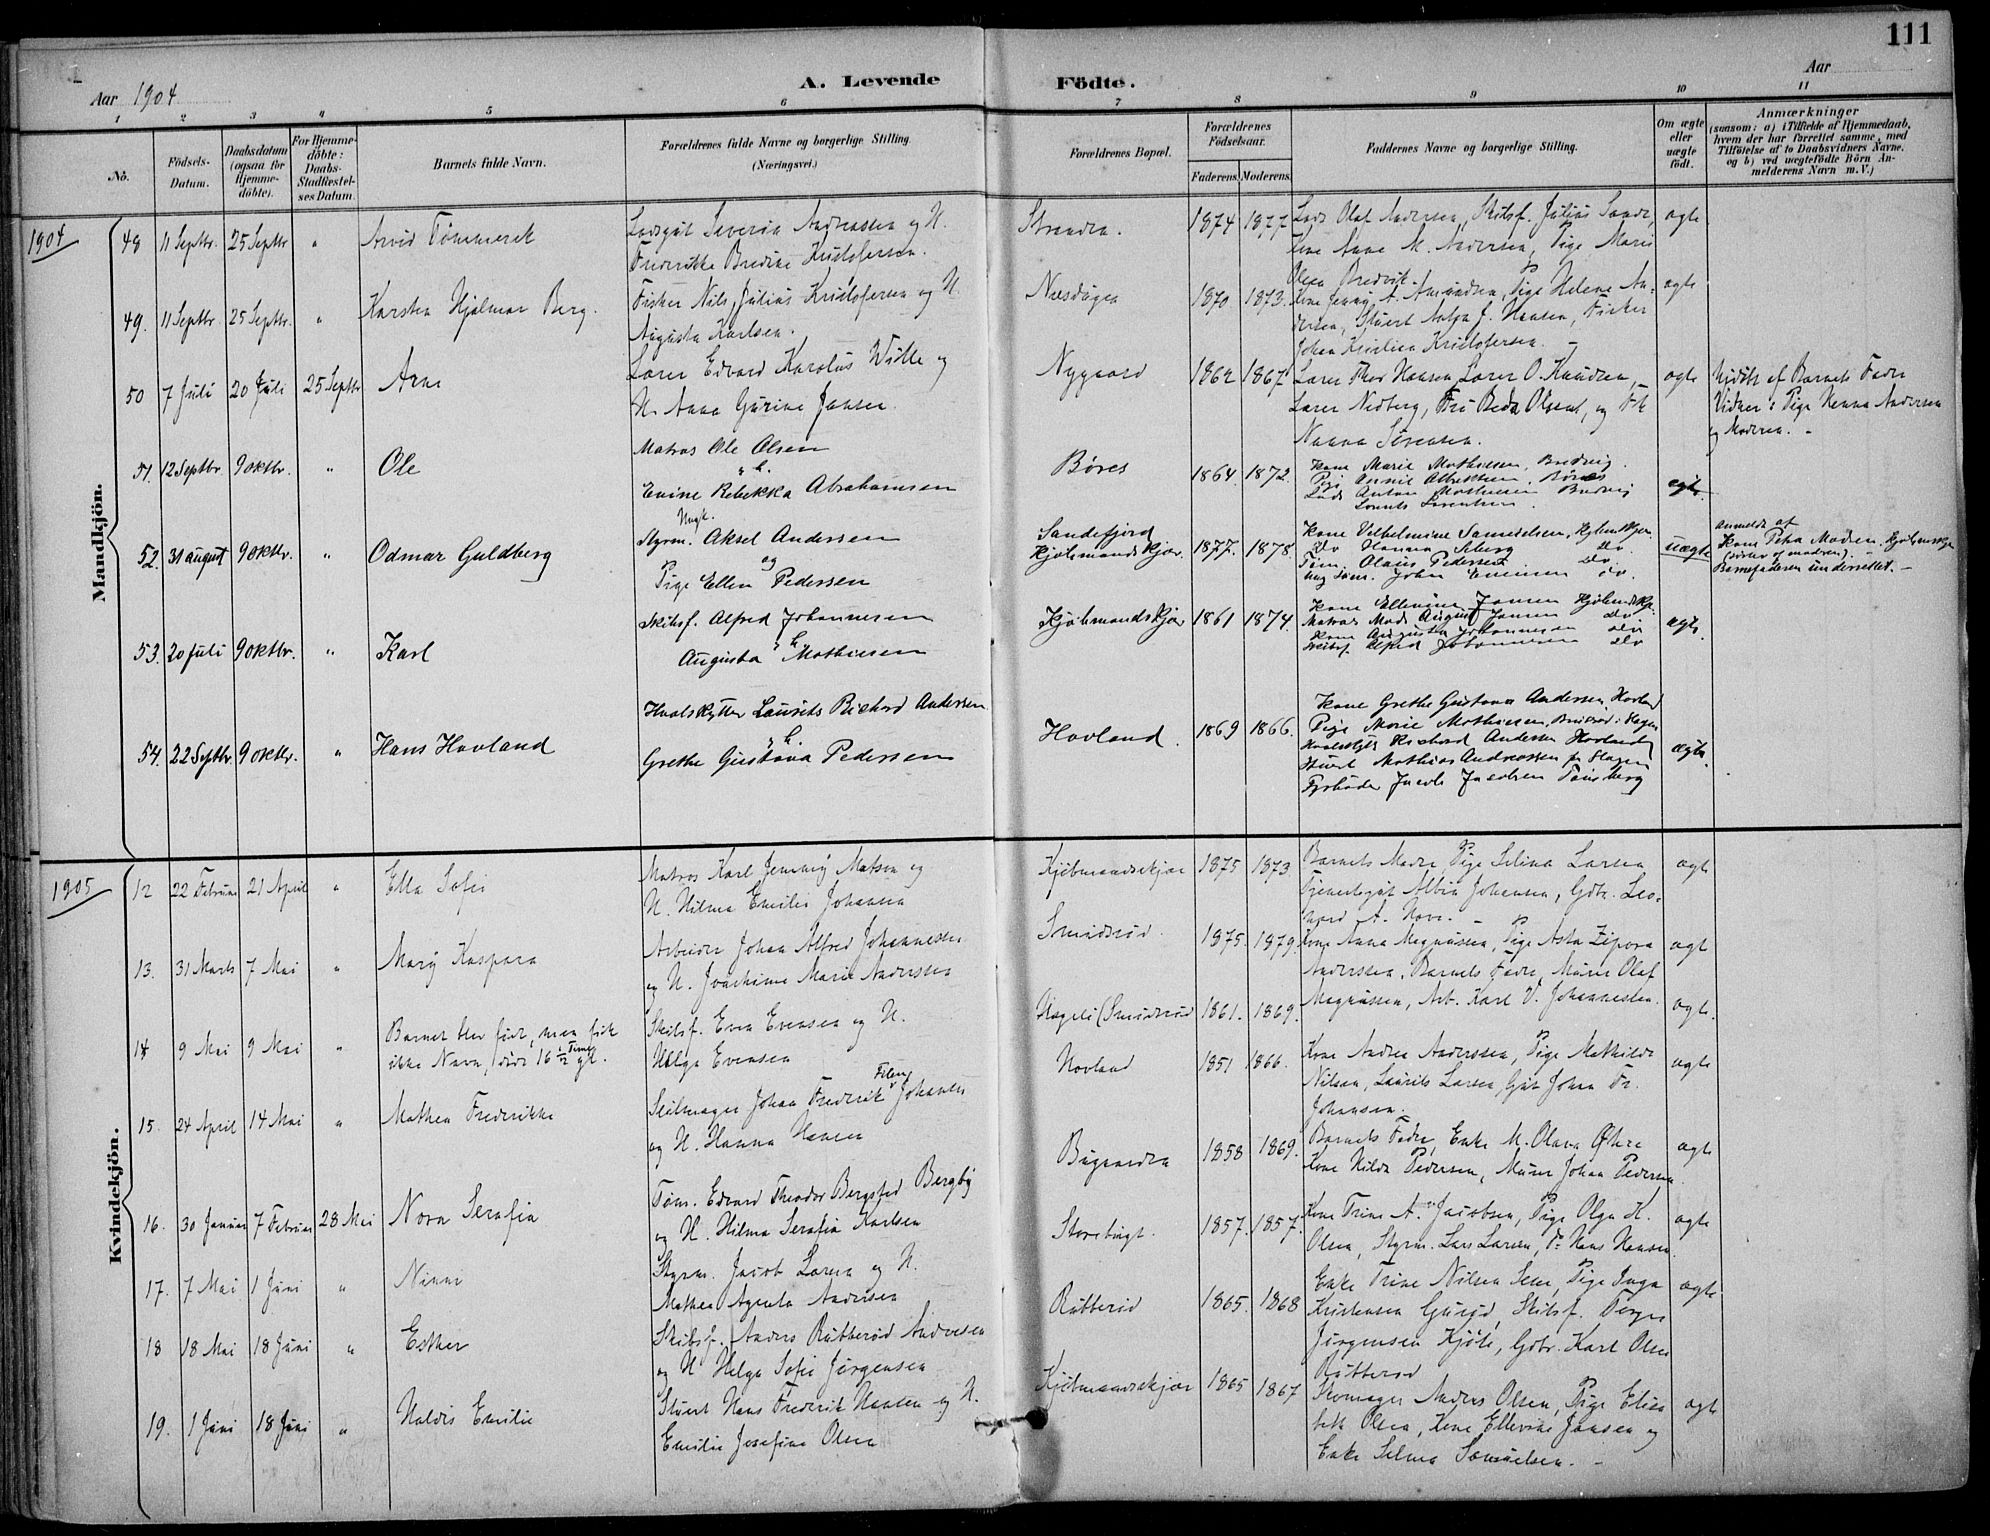 111
A. Levende Födte.
Aar 1904
Aar
1 2 3 4 5 6 7 8 9 10 11
No.
Födsels-Datum.
Daabsdatum (ogsaa for Hjemme-döbte).
For Hjemme-döbte: Daabs-Stadfæstelses Datum.
Barnets fulde Navn.
Forældrenes fulde Navne og borgerlige Stilling. (Næringsvei.)
Forældrenes Bopæl.
Forældrenes Födselsaar.
Faderens. Moderens.
Faddernes Navne og borgerlige Stilling.
Om ægte eller uægte födt.
Anmærkninger
(saasom: a) i Tilfælde af Hjemmedaab, hvem der har forrettet samme, med Tilföielse af to Daabsvidners Navne, og b) ved uægtefödte Börn Anmelderens Navn m. V.)
Mandkjön.
1904
48 11 Septbr. 25 Septbr " Arvid Tömmerek
Severin Andreassen og H.
Frederikke Bredine Kristofersen.
Stranden. 1874 1877
Lods Olaf Andersen, Skibsf. Julius Sande,
Kone Anne M. Andersen, Pige Marie
Olsen Bredvik.
ægte
49. 11 Septbr. 25 Septbr. " Karsten Hjalmar Berg.
Fisker Nils Julius Kristofersen og H.
Augusta Karlsen.
1870 1873.
Kone Jenny A. Amundsen, Pige Helene An-
dersen, Stuert Anton J. Hansen, Fisker
Johan Kristian Kristofersen. -
ægte
50 7 Juli 20 Juli 25 Septbr Arne
Lærer Edvard Karolus Wille og
H. Anna Gurine Jansen
Nygaard 1862 1867
Lærer Thor Hansen, Lærer O. Knudsen,
Lærer Nedberg, Fru Beda Olsen, og Frk
Nanna Sörensen.
ægte
Hjdöbt af Barnets Fader
Vidner: Pige Hanna Andersen
og Moderen. -
51. 12 Septbr. 9 oktbr. " Ole
Matros Ole Olsen
" h.
Enine Rebekka Abrahamsen
Böres 1864 1872.
Kone Marie Mathisen, Bredvig.
Pige Annie Albertsen, Böres
Lods Anton Mathisen Bredvig
Laurits Lorentsen.
ægte
52. 31 august 9 oktbr. " Odmar Guldberg
Ungk.
Styrm. Aksel Andersen
og
Pige Ellen Pedersen
Sandefjord
Kjöbmandskjær. 1877. 1878.
Kone Vilhelmine Samuelsen, Kjöbmskjær.
Do Hanna Seberg do.
Töm. Olaus Pedersen do.
Ung Söm. John Eminen do.
uægte
Anmeldt af
Kone Petra Madsen, Kjöbmskjær
(söster af moderen).
Barnefaderen underrettet. -
53. 20 juli 9 oktbr. " Karl
Skibsf. Alfred Johannesen
" h.
Augusta Mathisen
Kjöbmandskjær 1861 1874.
Kone Ellevine Jansen Kjöbmdskjær
Matros Mads August Jansen do
Kone Augusta Johannesen do
Skibsf. Alfred Johannesen do
ægte.
54. 22 Septbr. 9 oktbr. " Hans Hovland
Hvalskytter Laurids Richard Andersen
" h.
Grethe Gustava Pedersen
Hovland. 1869 1866.
Kone Grethe Gustava Andersen, Hovland
Pige Marie Mathisen, i Slagen
Richard Andersen Hovland
Stuert Mathias Andreassen fr Slagen
Fyrböder Jacob Jacobsen Tönsberg
ægte.
Kvindekjön.
1905
12 22 Februar 21 April " Ella Sofie
Matros Karl Jenning Matson og
H. Hilma Emilie Johansen
Kjöbmandskjær 1875 1873
Barnets Moder, Pige Selina Larsen
Tjenestepige Albin Johansen, Gdbr. Leo-
nard A. Hove. -
ægte
13. 31 Marts 7 Mai " Mary Kaspara
Arbeider Johan Alfred Johannessen
og H. Joachime Marie Anderssen
Smidsröd. 1875. 1879.
Kone Anna Magnussen, Pige Asta Zipora
Anderssen, Barnets Fader, Murer Olaf
Magnussen, Arb. Karl V. Johannessen.
ægte
14 9 Mai 9 Mai " Barnet blev födt, men fik
ikke Navn, döde 16 1/2 Time gl.
Skibsf. Even Evensen og H.
Helga Evensen
Hageli (Smidsröd 1861. 1869.
ægte.
15. 24 April 14 Mai " Mathea Frederikke
Seilmager Johan Frederik Johansen
og H. Hanna Hansen
Hovland 1851 1866.
Kone Andrea Anderssen, Pige Mathilde
Nilsen, Laurits Larsen Gut Johan Fr.
Johansen.
ægte
16. 30 Januar 7 Februar 28 Mai Nora Serafia
Töm. Edvard Theodor Bergsted Bergby
og H. Hilma Serafia Karlsen
Bugaarden 1858 1869.
Barnets Fader, Enke M. Olava Östre
Kone Hilda Pedersen, Murer Johan Pedersen.
ægte
17. 7 Mai 1 Juni " Ninni
Styrm. Jacob Larsen og H.
Mathea Agenta Andersen
Storebugt. 1857. 1857.
Kone Trine A. Jacobsen, Pige Olga K.
Olsen, Styrm. Lars Larsen, Do Hans Hansen
ægte
18 18 Mai 18 Juni " Esther
Skibsf. Anders Rütteröd Andresen
og H Helga Sofie Jörgensen
Rütteröd 1865. 1868
Enke Trine Nilsen Sem, Pige Inga
Kristensen Gjeröd, Skibsf. Terje
Jörgensen Kjöle, Gdbr. Karl Olsen
Rütteröd
ægte
19. 1 Juni 18 Juni " Haldis Emilie
Stuert Hans Frederik Hansen og H.
Emilie Josefine Olsen
Kjöbmandskjær 1865 1867
Skomager Anders Olsen, Pige Elisa
beth Olsen, Kone Ellevine Jansen og
Enke Selma Samuelsen. -
ægte